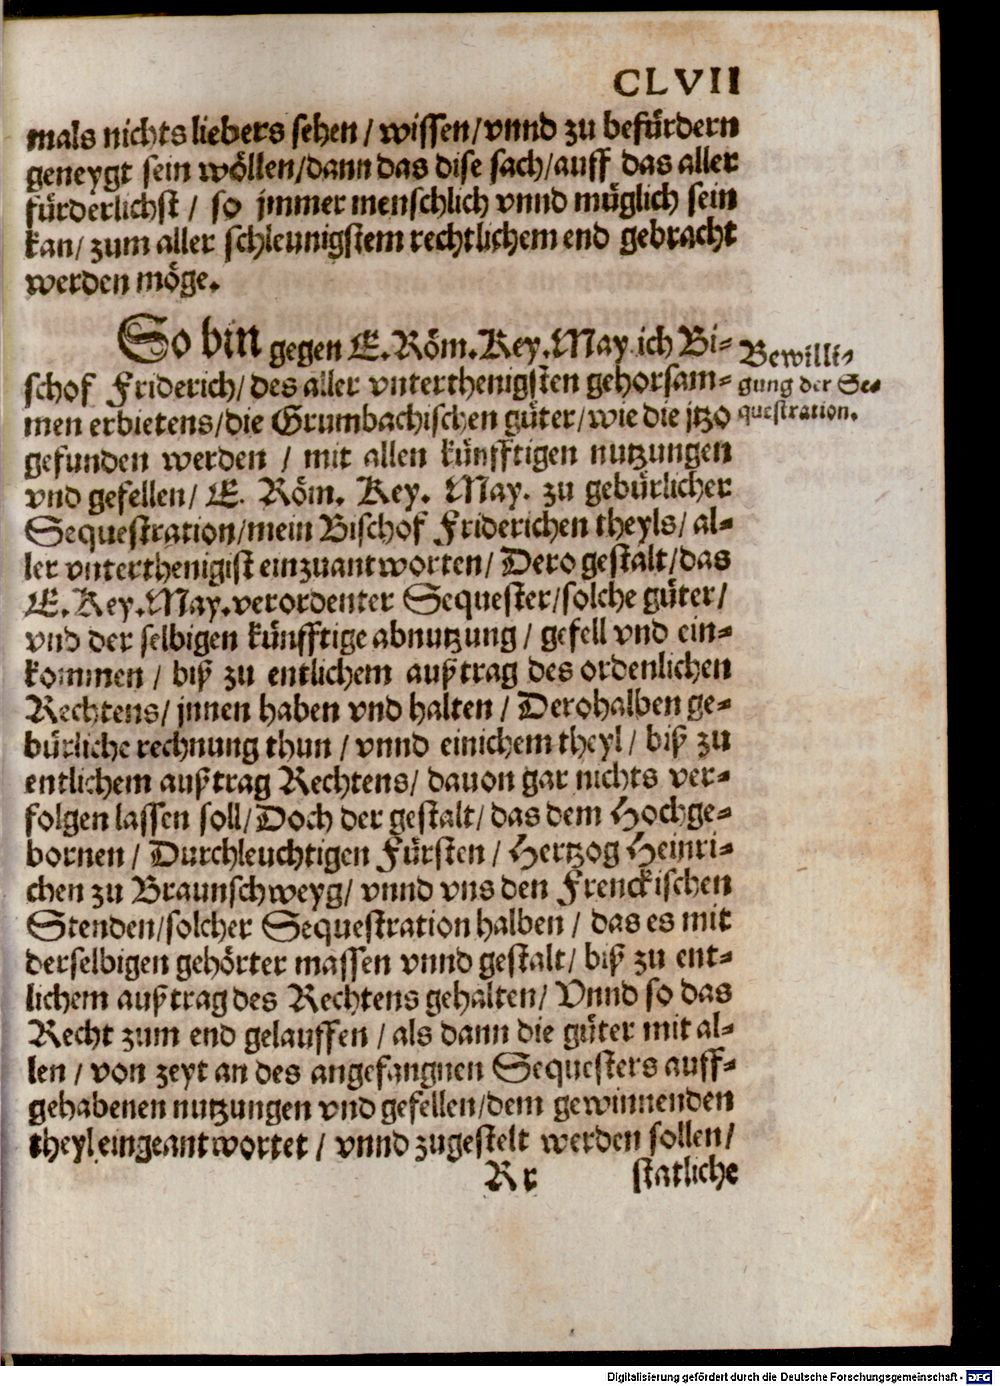 CLVII
mals nichts liebers sehen / wissen / vnnd zu befürdern
geneygt sein wöllen / dann das dise sach / auff das aller
fürderlichst / so jmmer menschlich vnnd müglich sein
kan / zum aller schleunigstem rechtlichem end gebracht
werden möge.
So bin gegen E. Röm. Key. May. ich Bi-
schof Friderich / des aller vnterthenigsten gehorsam-
men erbietens / die Grumbachischen güter / wie die jtzo
gefunden werden / mit allen künfftigen nutzungen
vnd gefellen / E. Röm. Key. May. zu gebürlicher
Sequestration / mein Bischof Friderichen theyls / al-
ler vnterthenigist einzuantworten / Dero gestalt / das
E. Key. May. verordenter Sequester / solche güter /
vnd der selbigen künfftige abnutzung / gefell vnd ein-
kommen / biß zu entlichem außtrag des ordenlichen
Rechtens / jnnen haben vnd halten / Derohalben ge-
bürliche rechnung thun / vnnd einichem theyl / biß zu
entlichem außtrag Rechtens / dauon gar nichts ver-
folgen lassen soll / Doch der gestalt / das dem Hochge-
bornen / Durchleuchtigen Fürsten / Hertzog Heinri-
chen zu Braunschweyg / vnnd vns den Frenckischen
Stenden / solcher Sequestration halben / das es mit
derselbigen gehörter massen vnnd gestalt / biß zu ent-
lichem außtrag des Rechtens gehalten / Vnnd so das
Recht zum end gelauffen / als dann die güter mit al-
len / von zeyt an des angefangnen Sequesters auff-
gehabenen nutzungen vnd gefellen / dem gewinnenden
theyl eingeantwortet / vnnd zugestelt werden sollen /
Rr statliche
Bewilli-
gung der Se-
questration.
Digitalisierung gefördert durch die Deutsche Forschungsgemeinschaft - DFG